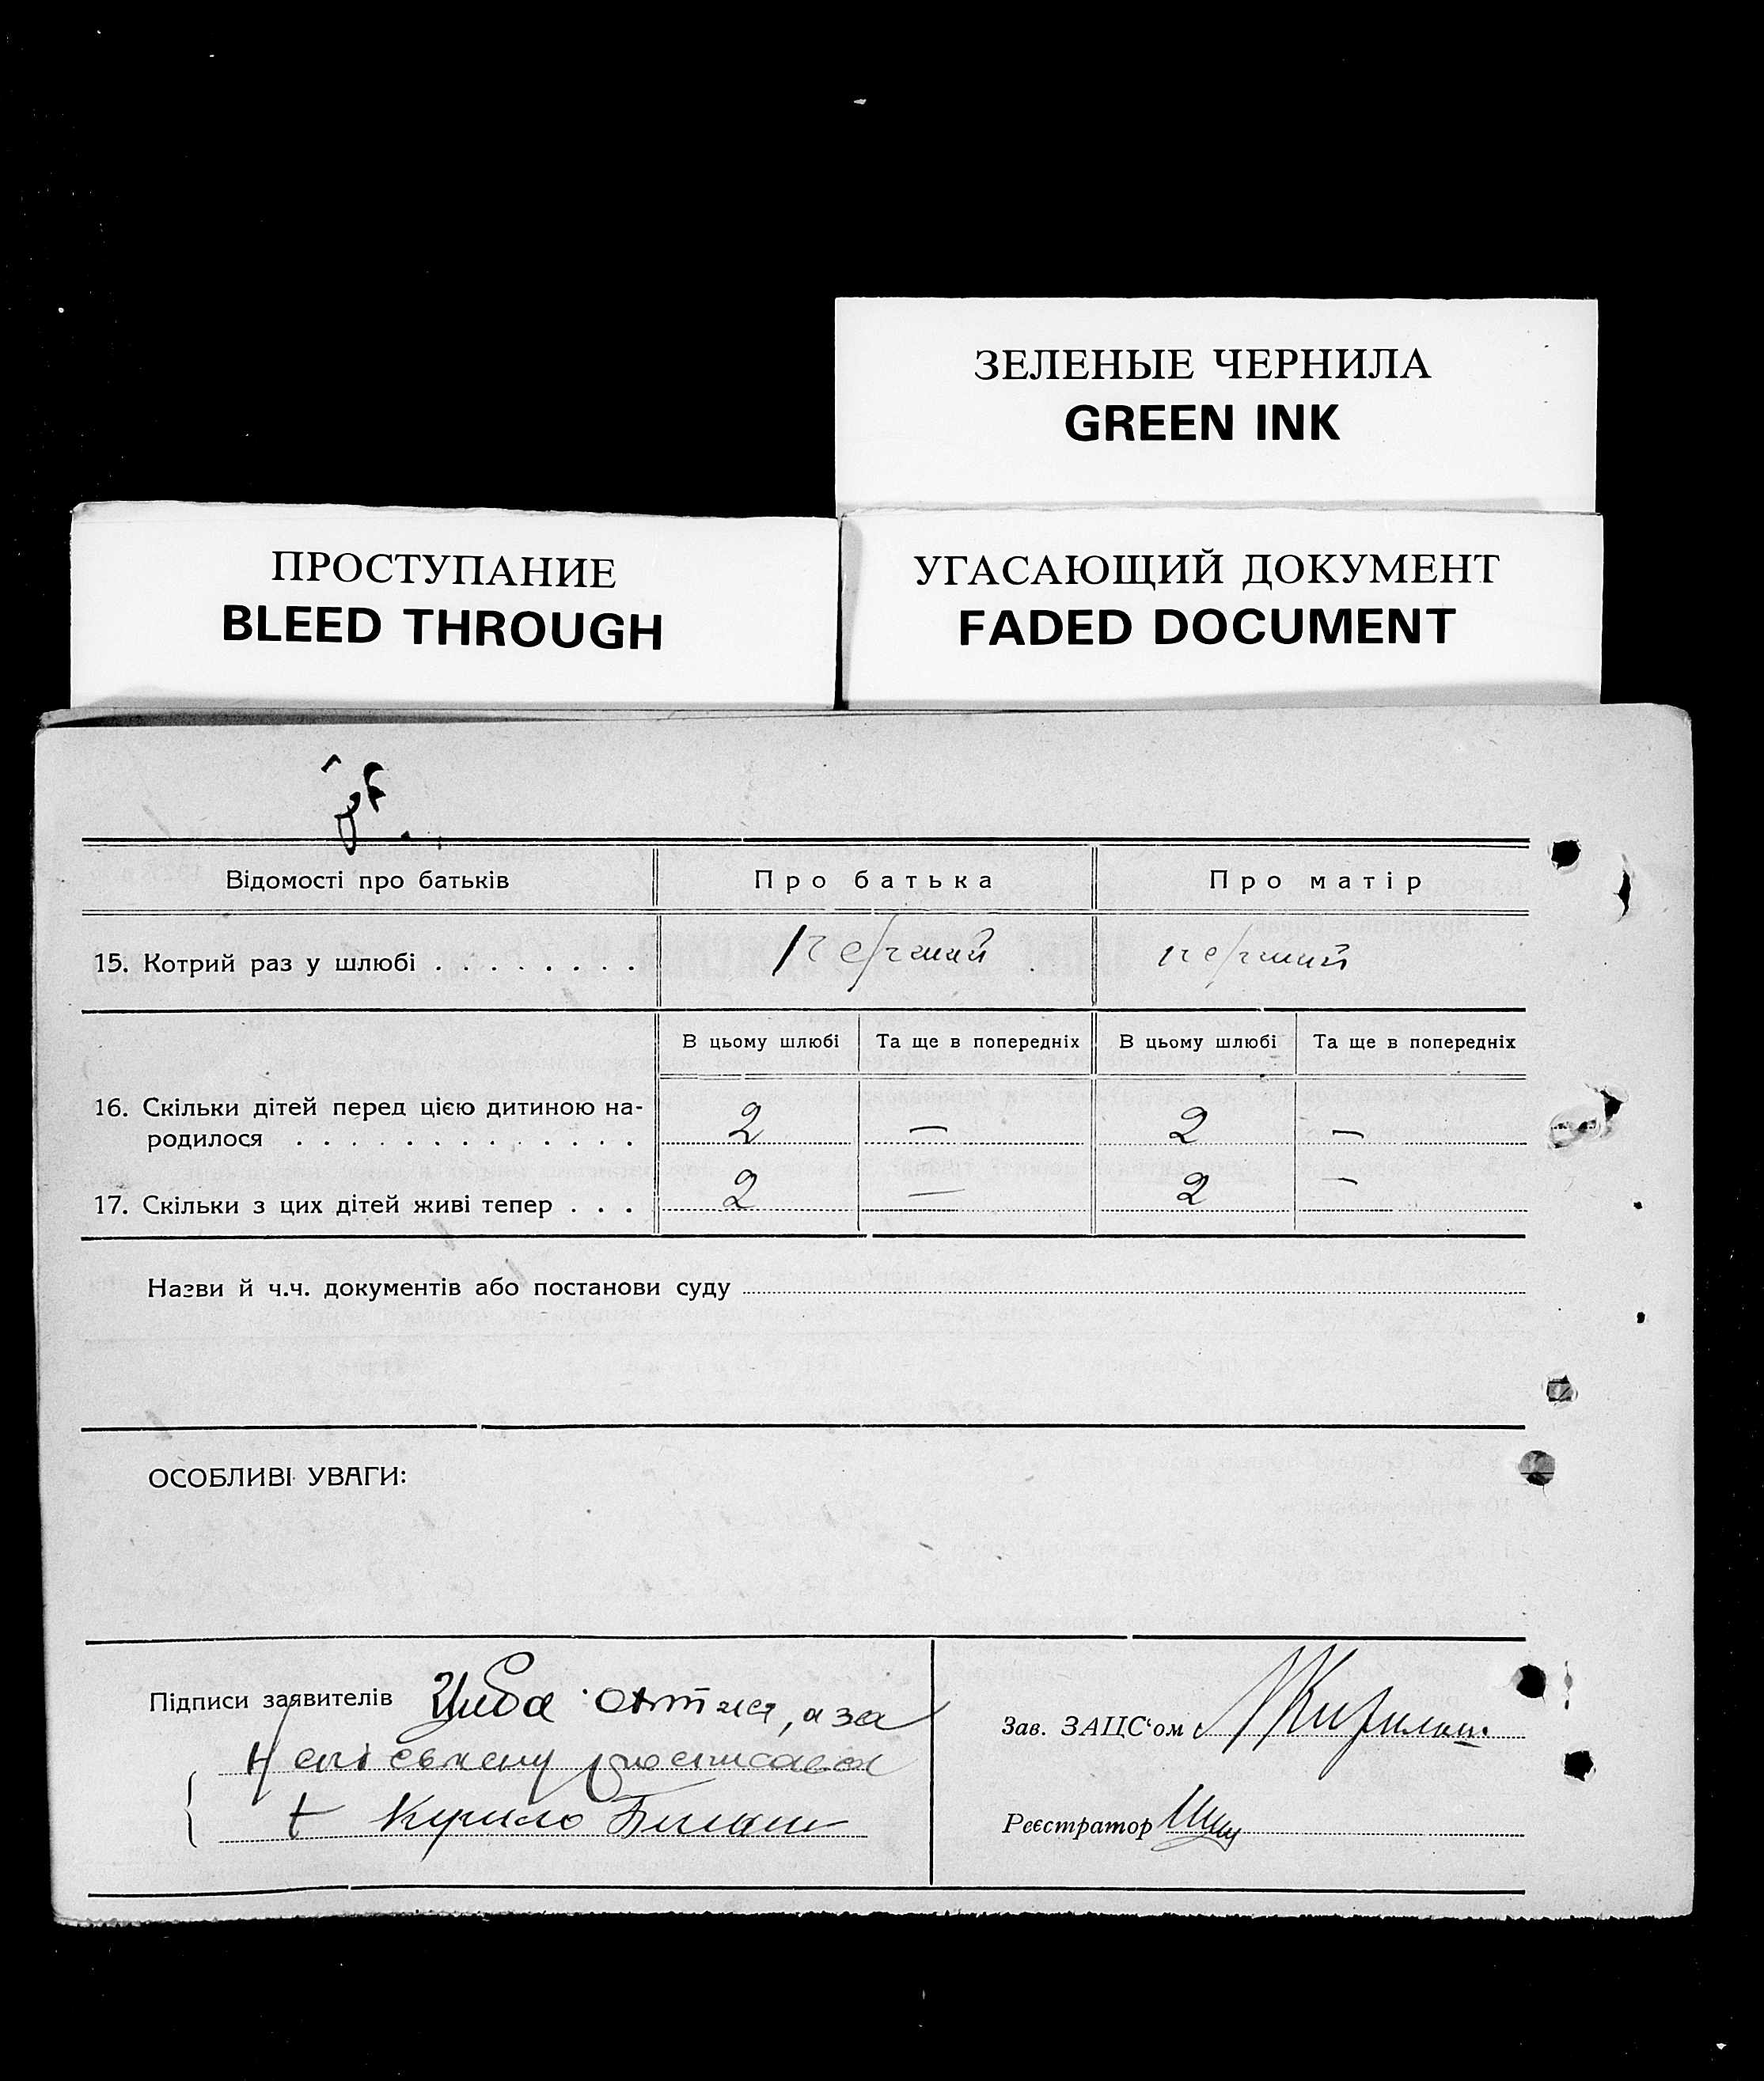 ЗЕЛЕНЫЕ ЧЕРНИЛА
GREEN INK
ПРОСТУПАНИЕ
BLEED THROUGH
УГАСАЮЩИЙ ДОКУМЕНТ
FADED DOCUMENT
Відомості про батьків Про батька Про матір
15. Котрий раз у шлюбі . . . . . . . . перший перший
В цьому шлюбі Та ще в попередніх В цьому шлюбі Та ще в попередніх
16. Скільки дітей перед цією дитиною на-
родилося . . . . . . . . . . . . . 2 — 2 —
17. Скільки з цих дітей живі тепер . . . 2 — 2 —
Назви й ч.ч. документів або постанови суду
ОСОБЛИВІ УВАГИ:
Підписи заявителів а за
+ Курило
Зав. ЗАЦС‘ом
Реєстратор